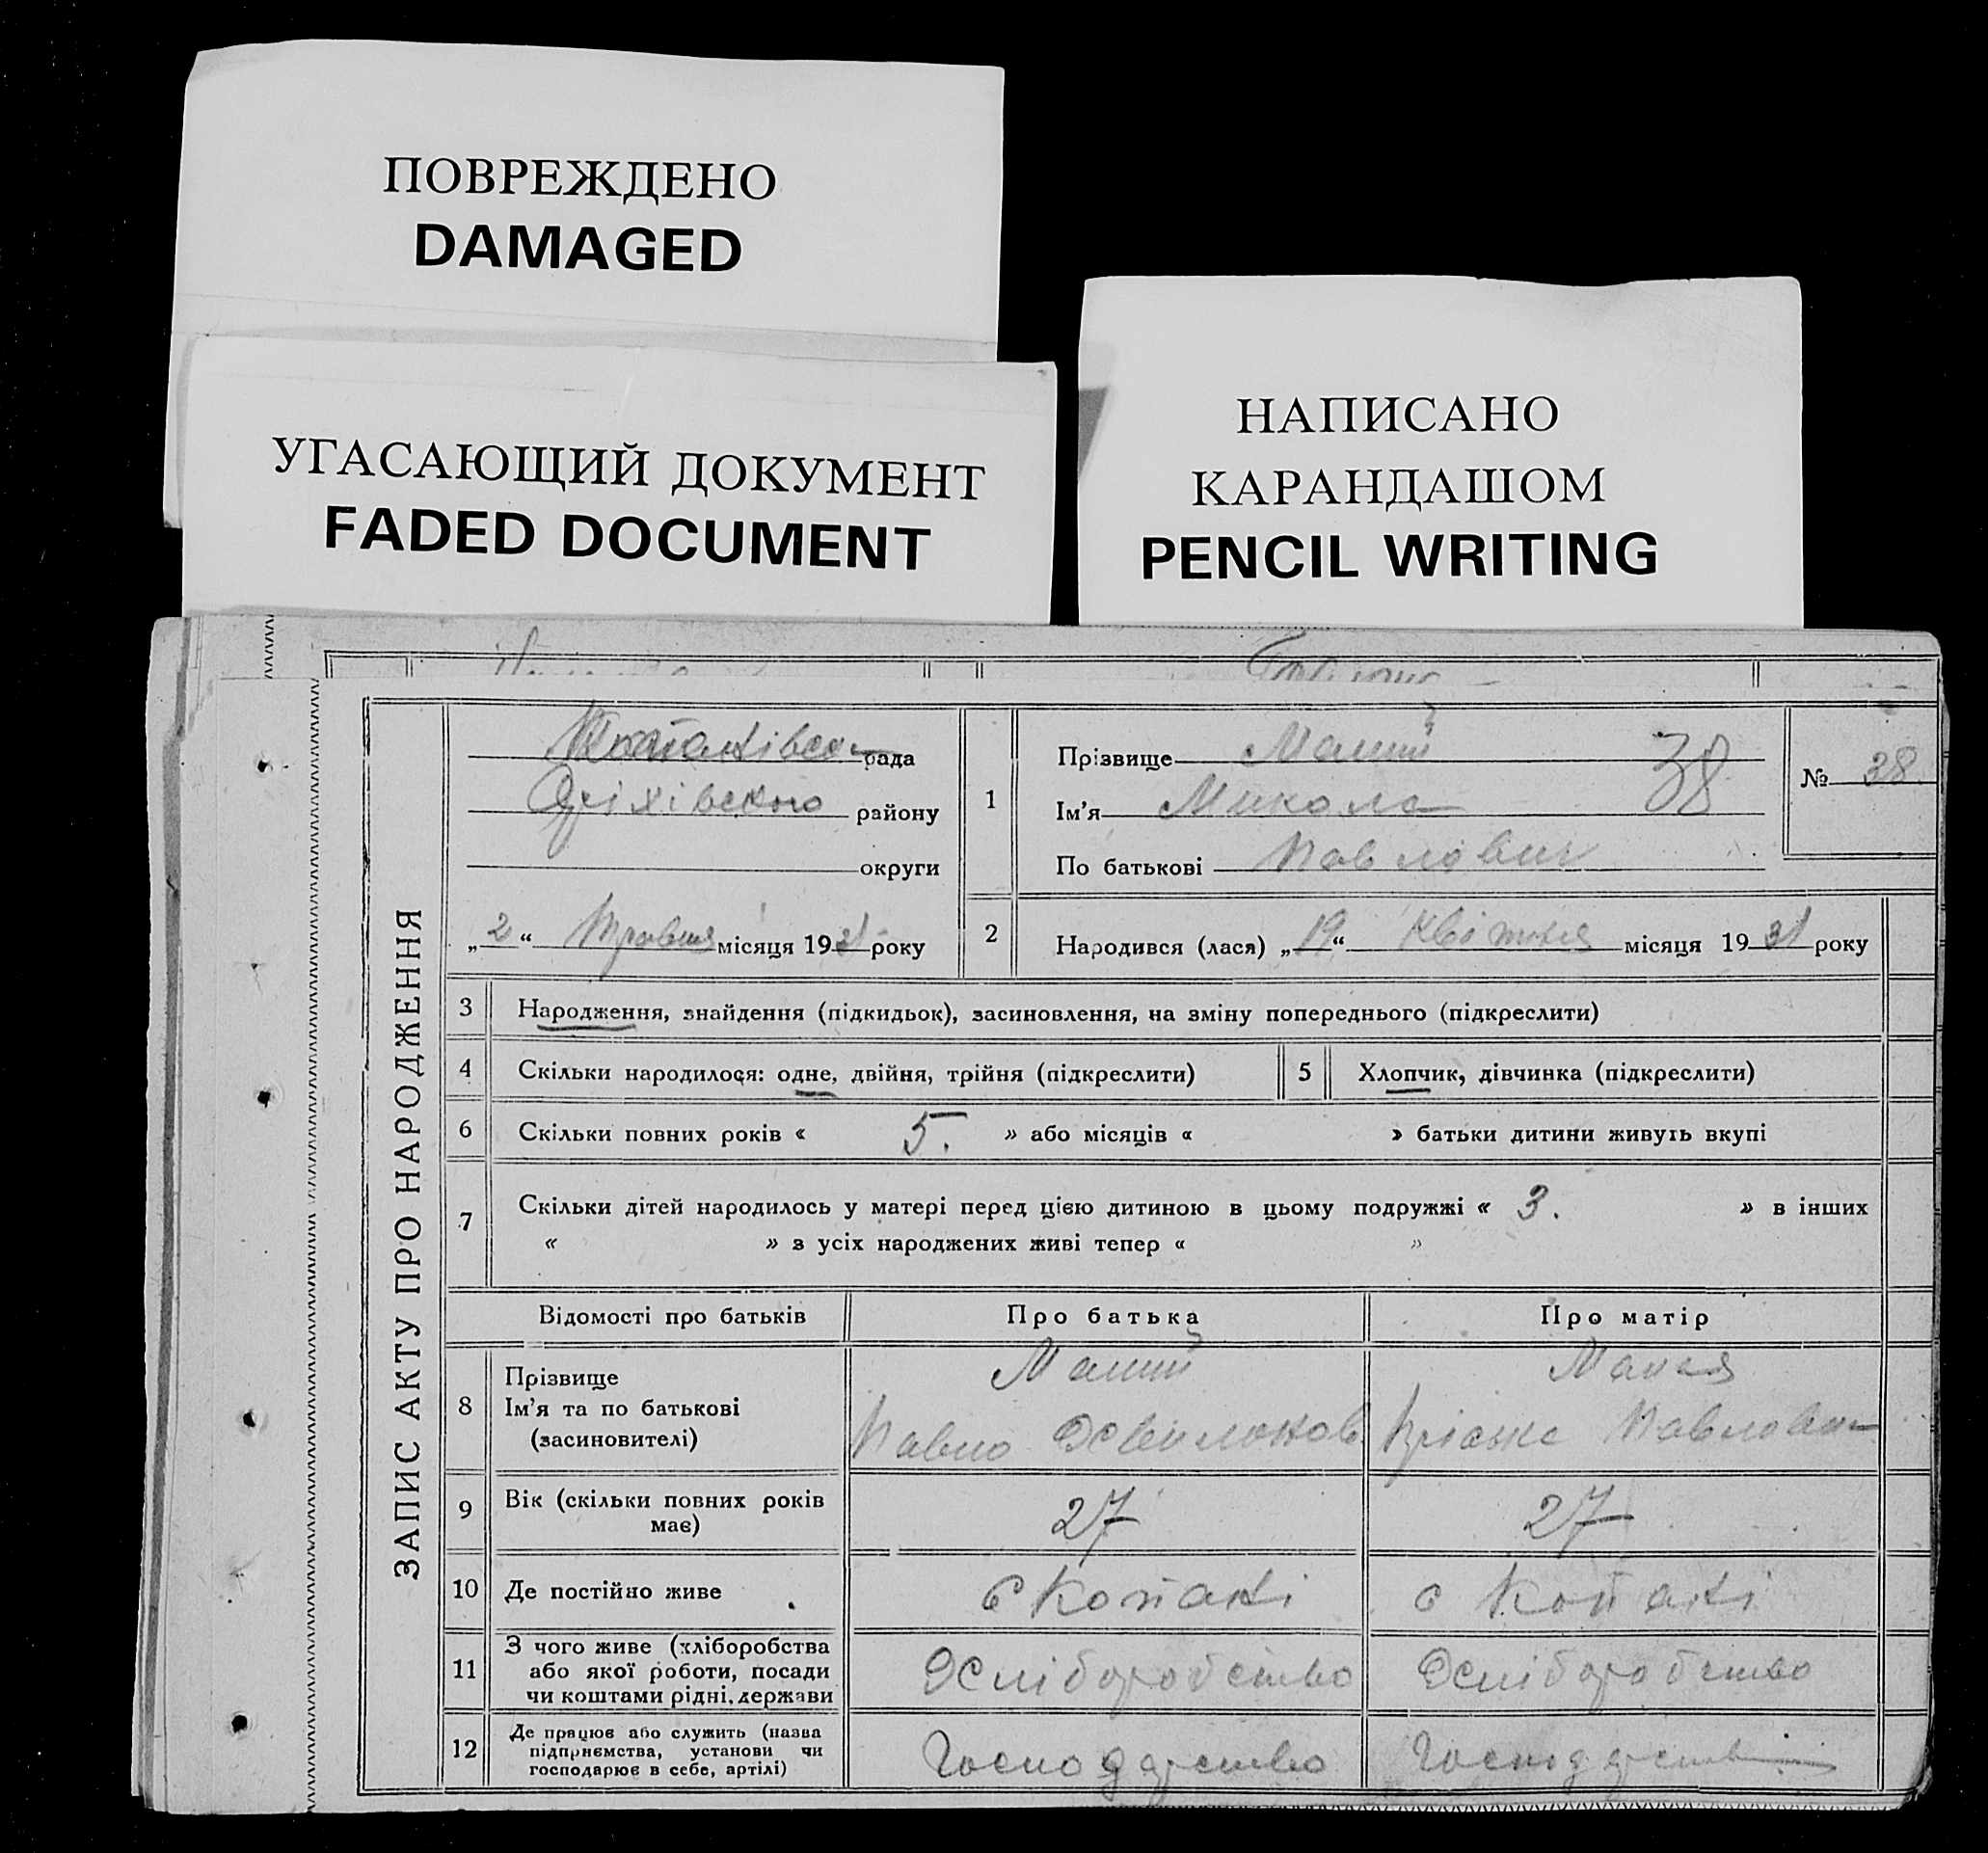 ПОВРЕЖДЕНО
DAMAGED
УГАСАЮЩИЙ ДОКУМЕНТ
FADED DOCUMENT
НАПИСАНО
КАРАНДАШОМ
PENCIL WRITING
ЗАПИС АКТУ ПРО НАРОДЖЕННЯ
рада
Оріхівського району
округи
„2“ Травня місяця 1931 року
1
Прізвище Малий 38
Ім'я Микола
По батькові Павлович
№ 38
2
Народився (лася) „19“ Квітня місяця 1931 року
3 Народження, знайдення (підкидьок), засиновлення, на зміну попереднього (підкреслити)
4 Скільки народилося: одне, двійня, трійня (підкреслити) 5 Хлопчик, дівчинка (підкреслити)
6 Скільки повних років « 5. » або місяців « » батьки дитини живуть вкупі
7 Скільки дітей народилось у матері перед цією дитиною в цьому подружжі « 3. » в інших
« » з усіх народжених живі тепер « »
Відомості про батьків Про батька Про матір
8 Прізвище Малий Малая
Ім'я та по батькові Павло Павловна
(засиновителі)
9 Вік (скільки повних років має) 27 27
10 Де постійно живе с Копані с Копані
11 З чого живе (хліборобства Хліборобство Хліборобство
або якої роботи, посади
чи коштами рідні, держави
12 Де працює або служить (назва Господарство
підприємства, установи чи
господарює в себе, артілі)